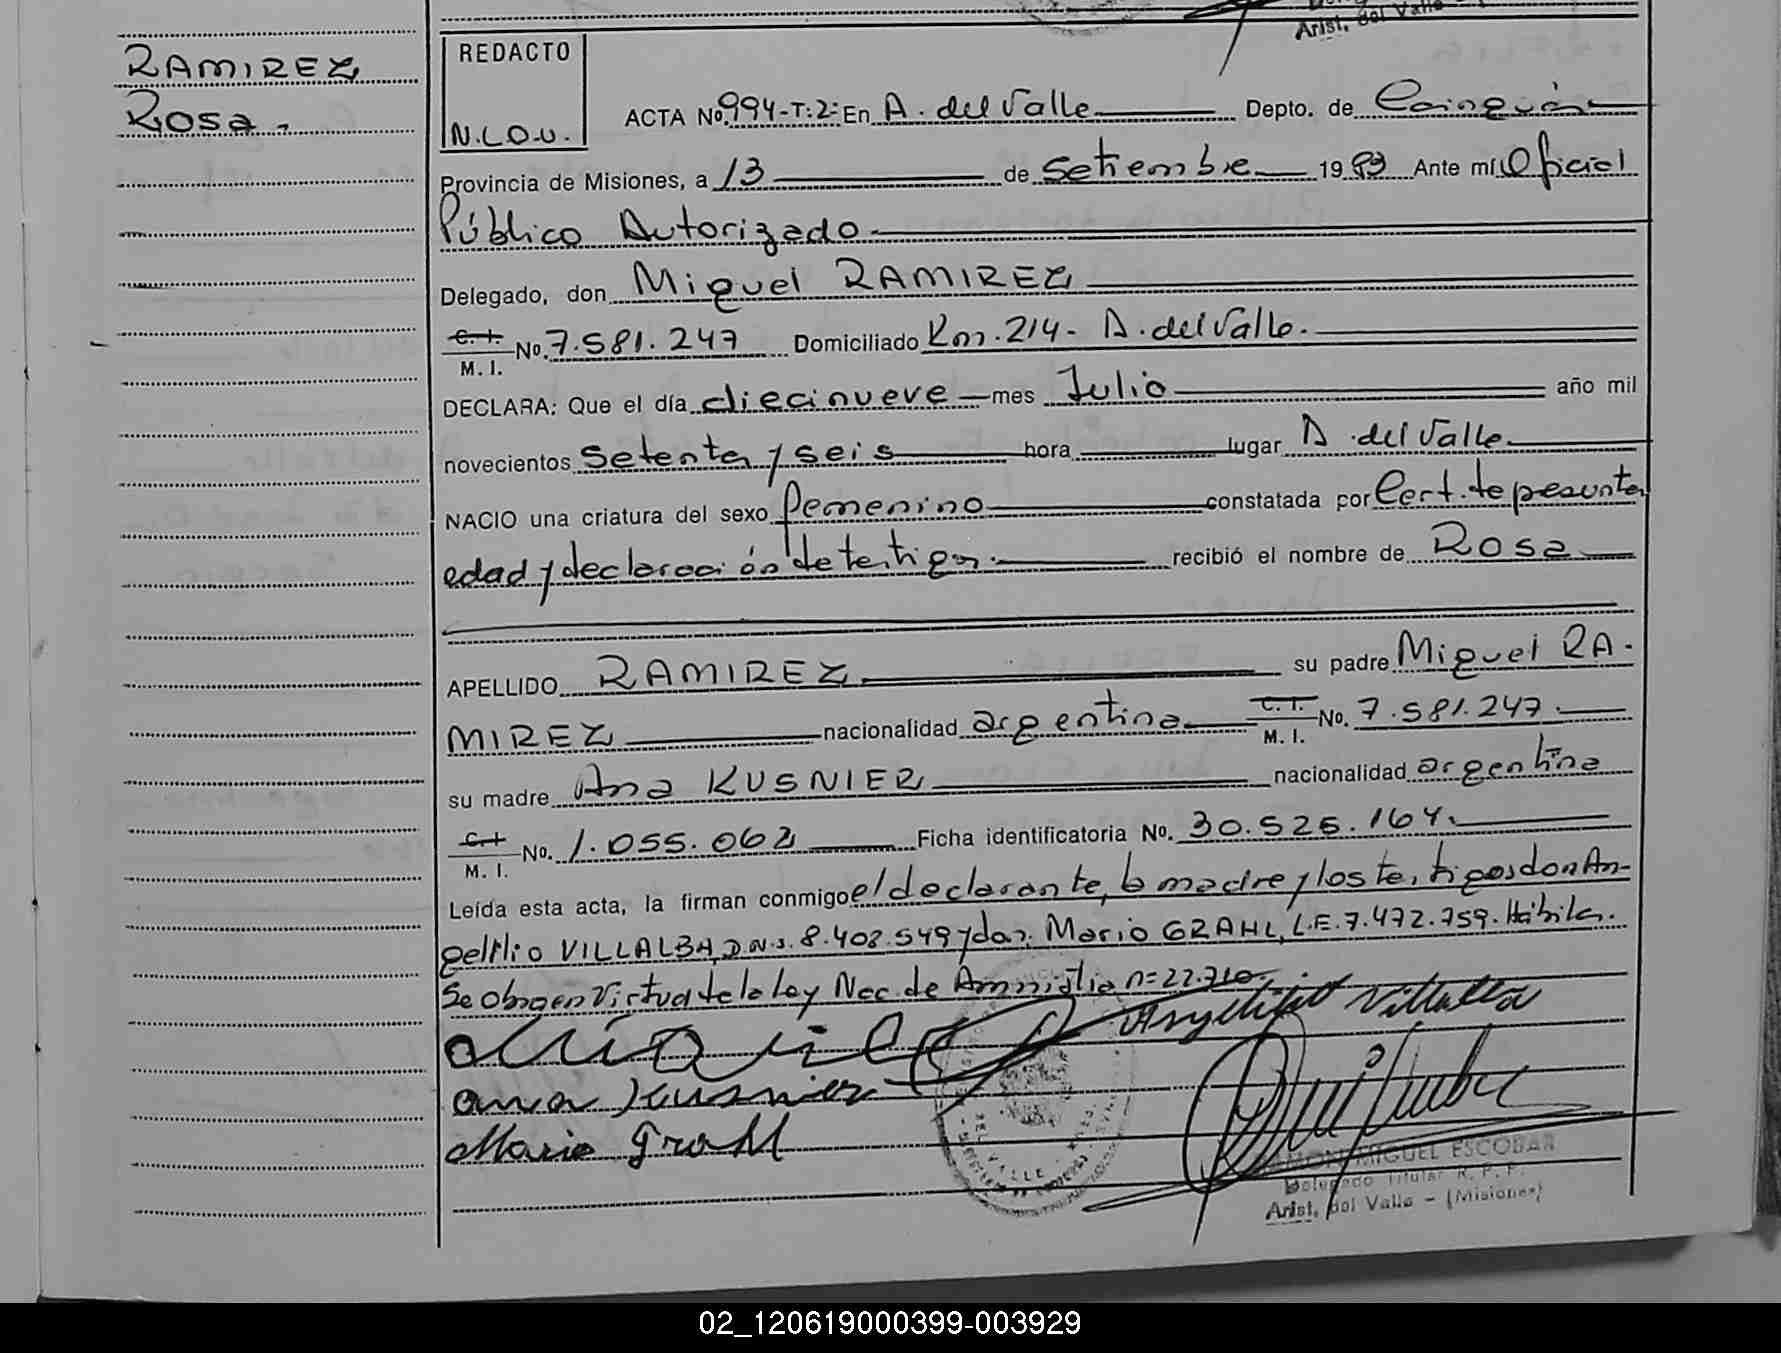 Arist. del Valle
RAMIREZ
Rosa.
REDACTO
N.L.O.U.
ACTA No. 994-T:2- En A. del Valle Depto. de Cainguás
Provincia de Misiones, a 13 de Setiembre 1983 Ante mí Oficial
Público Autorizado
Delegado, don Miguel RAMIREZ
C. I.
M. I. No. 7.581.247 Domiciliado Km. 214- A. del Valle.
DECLARA: Que el día diecinueve mes Julio año mil
novecientos setenta y seis hora lugar A. del Valle
NACIO una criatura del sexo femenino constatada por Cert. de presunta
edad y declaración de testigos. recibió el nombre de Rosa
APELLIDO RAMIREZ su padre Miguel RA-
MIREZ nacionalidad argentina C. I. M. I. No. 7.581.247.
su madre Ana KUSNIER nacionalidad argentina
C. I.
M. I. No. 1.055.062 Ficha identificatoria No. 30.525.164
Leída esta acta, la firman conmigo el declarante, la madre y los testigos don An-
gel VILLALBA, D.N.I. 8.408.549 y don Mario GRAHL, L.E. 7.472.759. Hábiles.
Se obra en Virtud de la ley Nac. de Amnistia n=22.710.
Villalba
ana Kusnier
Mario Grahl
RAMON MIGUEL ESCOBAR
Delegado Titular R. P. F.
Arist. del Valle - (Misiones)
02_120619000399-003929